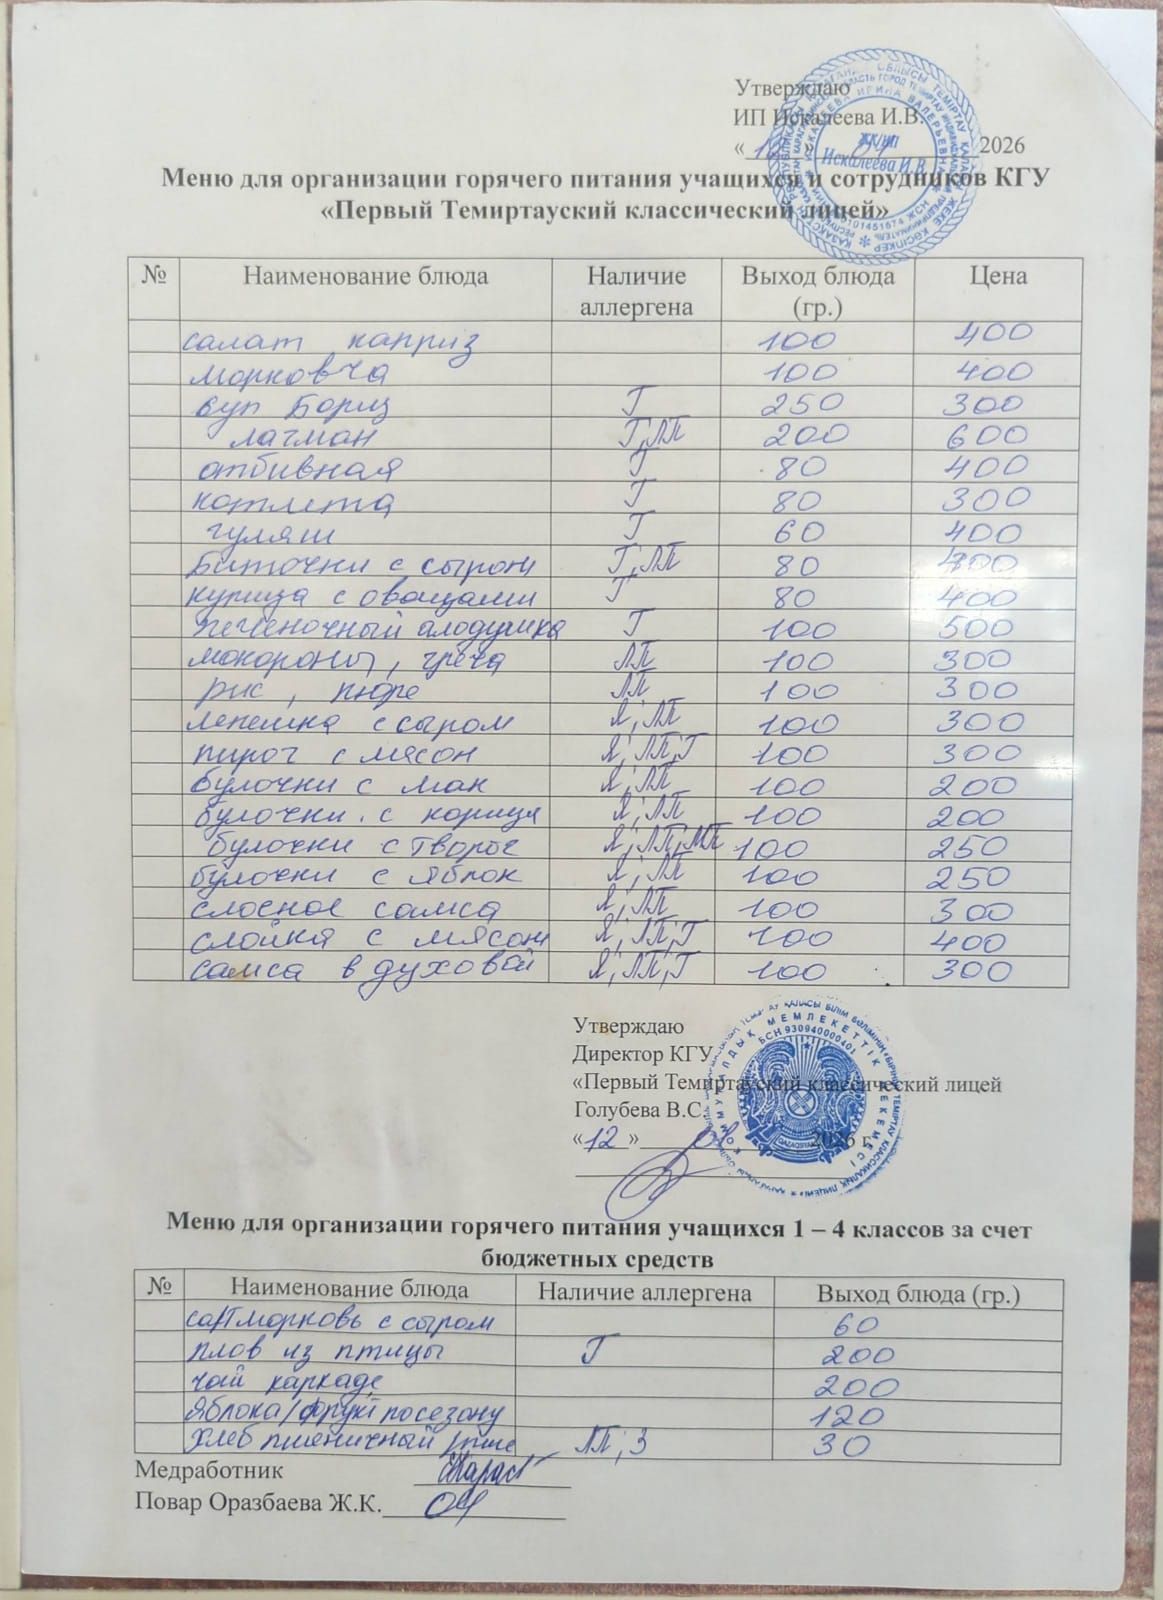 Утверждаю
ИП Искалеева И.В.
« 12 » 01 2026
Меню для организации горячего питания учащихся и сотрудников КГУ
«Первый Темиртауский классический лицей»
№ Наименование блюда Наличие аллергена Выход блюда (гр.) Цена
салат каприз 100 400
морковча 100 400
суп Борщ Г 250 300
лагман Г, ЛП 200 600
отбивная Г 80 400
котлета Г 80 300
гуляш Г 60 400
Биточки с сыром Г, ЛП 80
курица с овощами Г 80 400
печеночный алодушка Г 100 500
мокороны, греча ЛП 100 300
рис, пюре ЛП 100 300
лепешка с сыром Я, ЛП 100 300
пирог с мясом Я, ЛП, Г 100 300
булочки с мак Я, ЛП 100 200
булочки с корица Я, ЛП 100 200
булочки с творог Я, ЛП, МП 100 250
булочки с яблок Я, ЛП 100 250
слоеное самса Я, ЛП 100 300
слойка с мясом Я, ЛП, Г 100 400
самса в духовой Я, ЛП, Г 100 300
Утверждаю
Директор КГУ
«Первый Темиртауский классический лицей
Голубева В.С.
«12» 01 2026 г.
Меню для организации горячего питания учащихся 1 – 4 классов за счет
бюджетных средств
№ Наименование блюда Наличие аллергена Выход блюда (гр.)
сал морковь с сыром 60
плов из птицы Г 200
чай каркаде 200
Яблока/фрукт посезону 120
хлеб пшеничный ЛП, З 30
Медработник
Повар Оразбаева Ж.К.